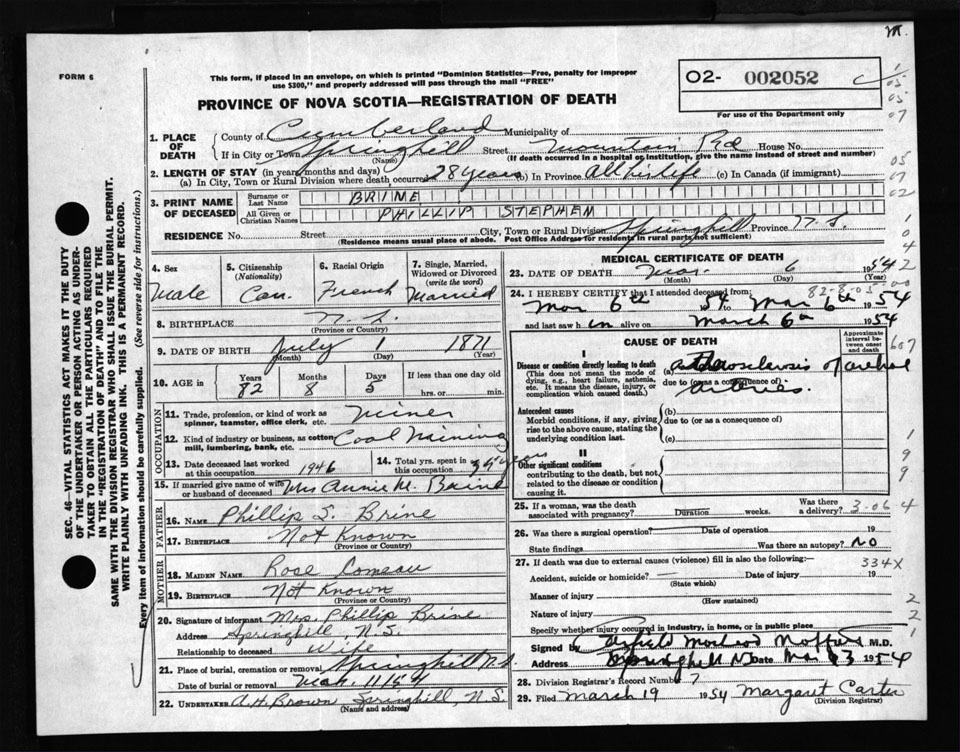 M.
FORM 6
This form, if placed in an envelope, on which is printed "Dominion Statistics—Free, penalty for improper
use $300," and properly addressed will pass through the mail "FREE"
O2- 002052
For use of the Department only
PROVINCE OF NOVA SCOTIA—REGISTRATION OF DEATH
SEC. 46—VITAL STATISTICS ACT MAKES IT THE DUTY
OF THE UNDERTAKER OR PERSON ACTING AS UNDER-
TAKER TO OBTAIN ALL THE PARTICULARS REQUIRED
IN THE "REGISTRATION OF DEATH" AND TO FILE THE
SAME WITH THE DIVISION REGISTRAR WHO SHALL ISSUE THE BURIAL PERMIT.
WRITE PLAINLY WITH UNFADING INK. THIS IS A PERMANENT RECORD.
Every item of information should be carefully supplied. (See reverse side for instructions.)
1. PLACE OF DEATH
County of Cumberland Municipality of
If in City or Town Springhill Street Mountain Rd House No.
(Name) (If death occurred in a hospital or institution, give the name instead of street and number)
2. LENGTH OF STAY (in years, months and days)
(a) In City, Town or Rural Division where death occurred 28 years (b) In Province All his life (c) In Canada (if immigrant)
3. PRINT NAME OF DECEASED
Surname or Last Name BRINE
All Given or Christian Names PHILLIP STEPHEN
RESIDENCE No. Street City, Town or Rural Division Springhill Province N.S.
(Residence means usual place of abode. Post Office Address for residents in rural parts not sufficient)
4. Sex Male
5. Citizenship (Nationality) Can.
6. Racial Origin French
7. Single, Married, Widowed or Divorced (write the word) Married
8. BIRTHPLACE N.S.
(Province or Country)
9. DATE OF BIRTH July 1 1871
(Month) (Day) (Year)
10. AGE in Years 82 Months 8 Days 5 If less than one day old hrs. or min.
OCCUPATION
11. Trade, profession, or kind of work as
spinner, teamster, office clerk, etc. Miner
12. Kind of industry or business, as cotton
mill, lumbering, bank, etc. Coal Mining
13. Date deceased last worked
at this occupation 1946
14. Total yrs. spent in
this occupation 35 years
15. If married give name of wife
or husband of deceased Mrs Annie M. Brine
FATHER
16. NAME Phillip S. Brine
17. BIRTHPLACE Not Known
(Province or Country)
MOTHER
18. MAIDEN NAME Rose Comeau
19. BIRTHPLACE Not Known
(Province or Country)
20. Signature of informant Mrs. Phillip Brine
Address Springhill, N.S.
Relationship to deceased Wife
21. Place of burial, cremation or removal Springhill N.S.
Date of burial or removal Mar. 11 1954
22. UNDERTAKER A.H. Brown Springhill, N.S.
(Name and address)
MEDICAL CERTIFICATE OF DEATH
23. DATE OF DEATH Mar. 6 1954
(Month) (Day) (Year)
24. I HEREBY CERTIFY that I attended deceased from:
82-8-05
Mar 6th 1954 to Mar 6th 1954
and last saw him alive on March 6th 1954
CAUSE OF DEATH
Approximate interval between onset and death
I
Disease or condition directly leading to death
(This does not mean the mode of
dying, e.g., heart failure, asthenia,
etc. It means the disease, injury, or
complication which caused death.)
(a)
due to (or as a consequence of)
Antecedent causes
Morbid conditions, if any, giving
rise to the above cause, stating the
underlying condition last.
(b)
due to (or as a consequence of)
(c)
II
Other significant conditions
contributing to the death, but not
related to the disease or condition
causing it.
25. If a woman, was the death
associated with pregnancy? Duration weeks. Was there
a delivery?
3-064
26. Was there a surgical operation? Date of operation 19
State findings Was there an autopsy? NO
27. If death was due to external causes (violence) fill in also the following:—
334X
Accident, suicide or homicide? — Date of injury 19
(State which)
Manner of injury
(How sustained)
Nature of injury
Specify whether injury occurred in industry, in home, or in public place
Signed by M.D.
Address Springhill NS Date 1954
28. Division Registrar's Record Number 7
29. Filed March 19 1954 Margaret Carter
(Division Registrar)